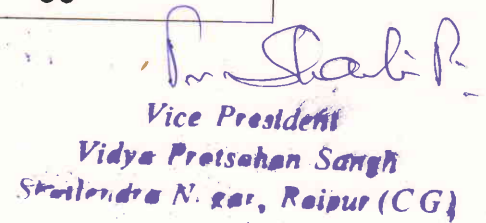 Vice President
Vidya Protsahan Sangh
Shailendra N. gar, Raipur (C G)